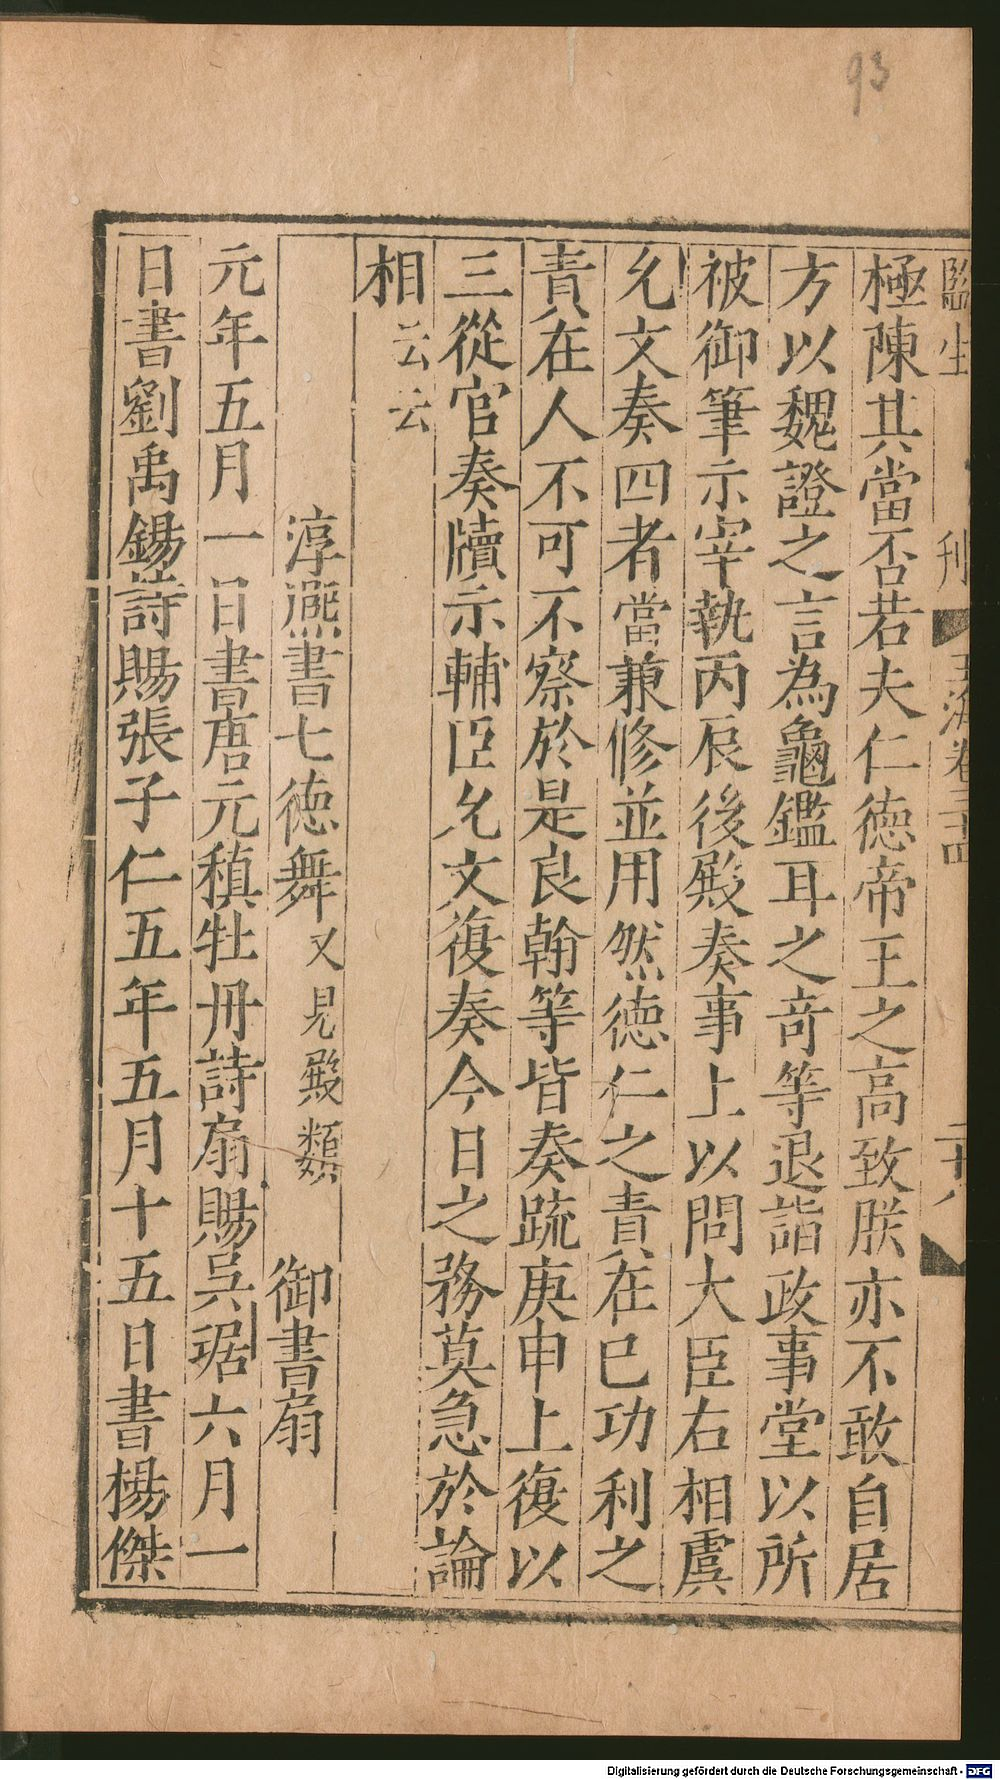 93
監生 刋 玉海卷三十四 二十八
極陳其當否若夫仁德帝王之高致朕亦不敢自居
方以魏證之言為龜鑑耳之竒等退詣政事堂以所
被御筆示宰執丙辰後殿奏事上以問大臣右相虞
允文奏四者當兼修並用然德仁之責在巳功利之
責在人不可不察於是良翰等皆奏䟽庚申上復以
三從官奏牘示輔臣允文復奏今日之務莫急於論
相云云
淳熈書七德舞又見殿類 御書扇
元年五月一日書唐元稹牡丹詩扇賜吳琚六月一
日書劉禹錫詩賜張子仁五年五月十五日書楊傑
Digitalisierung gefördert durch die Deutsche Forschungsgemeinschaft - DFG